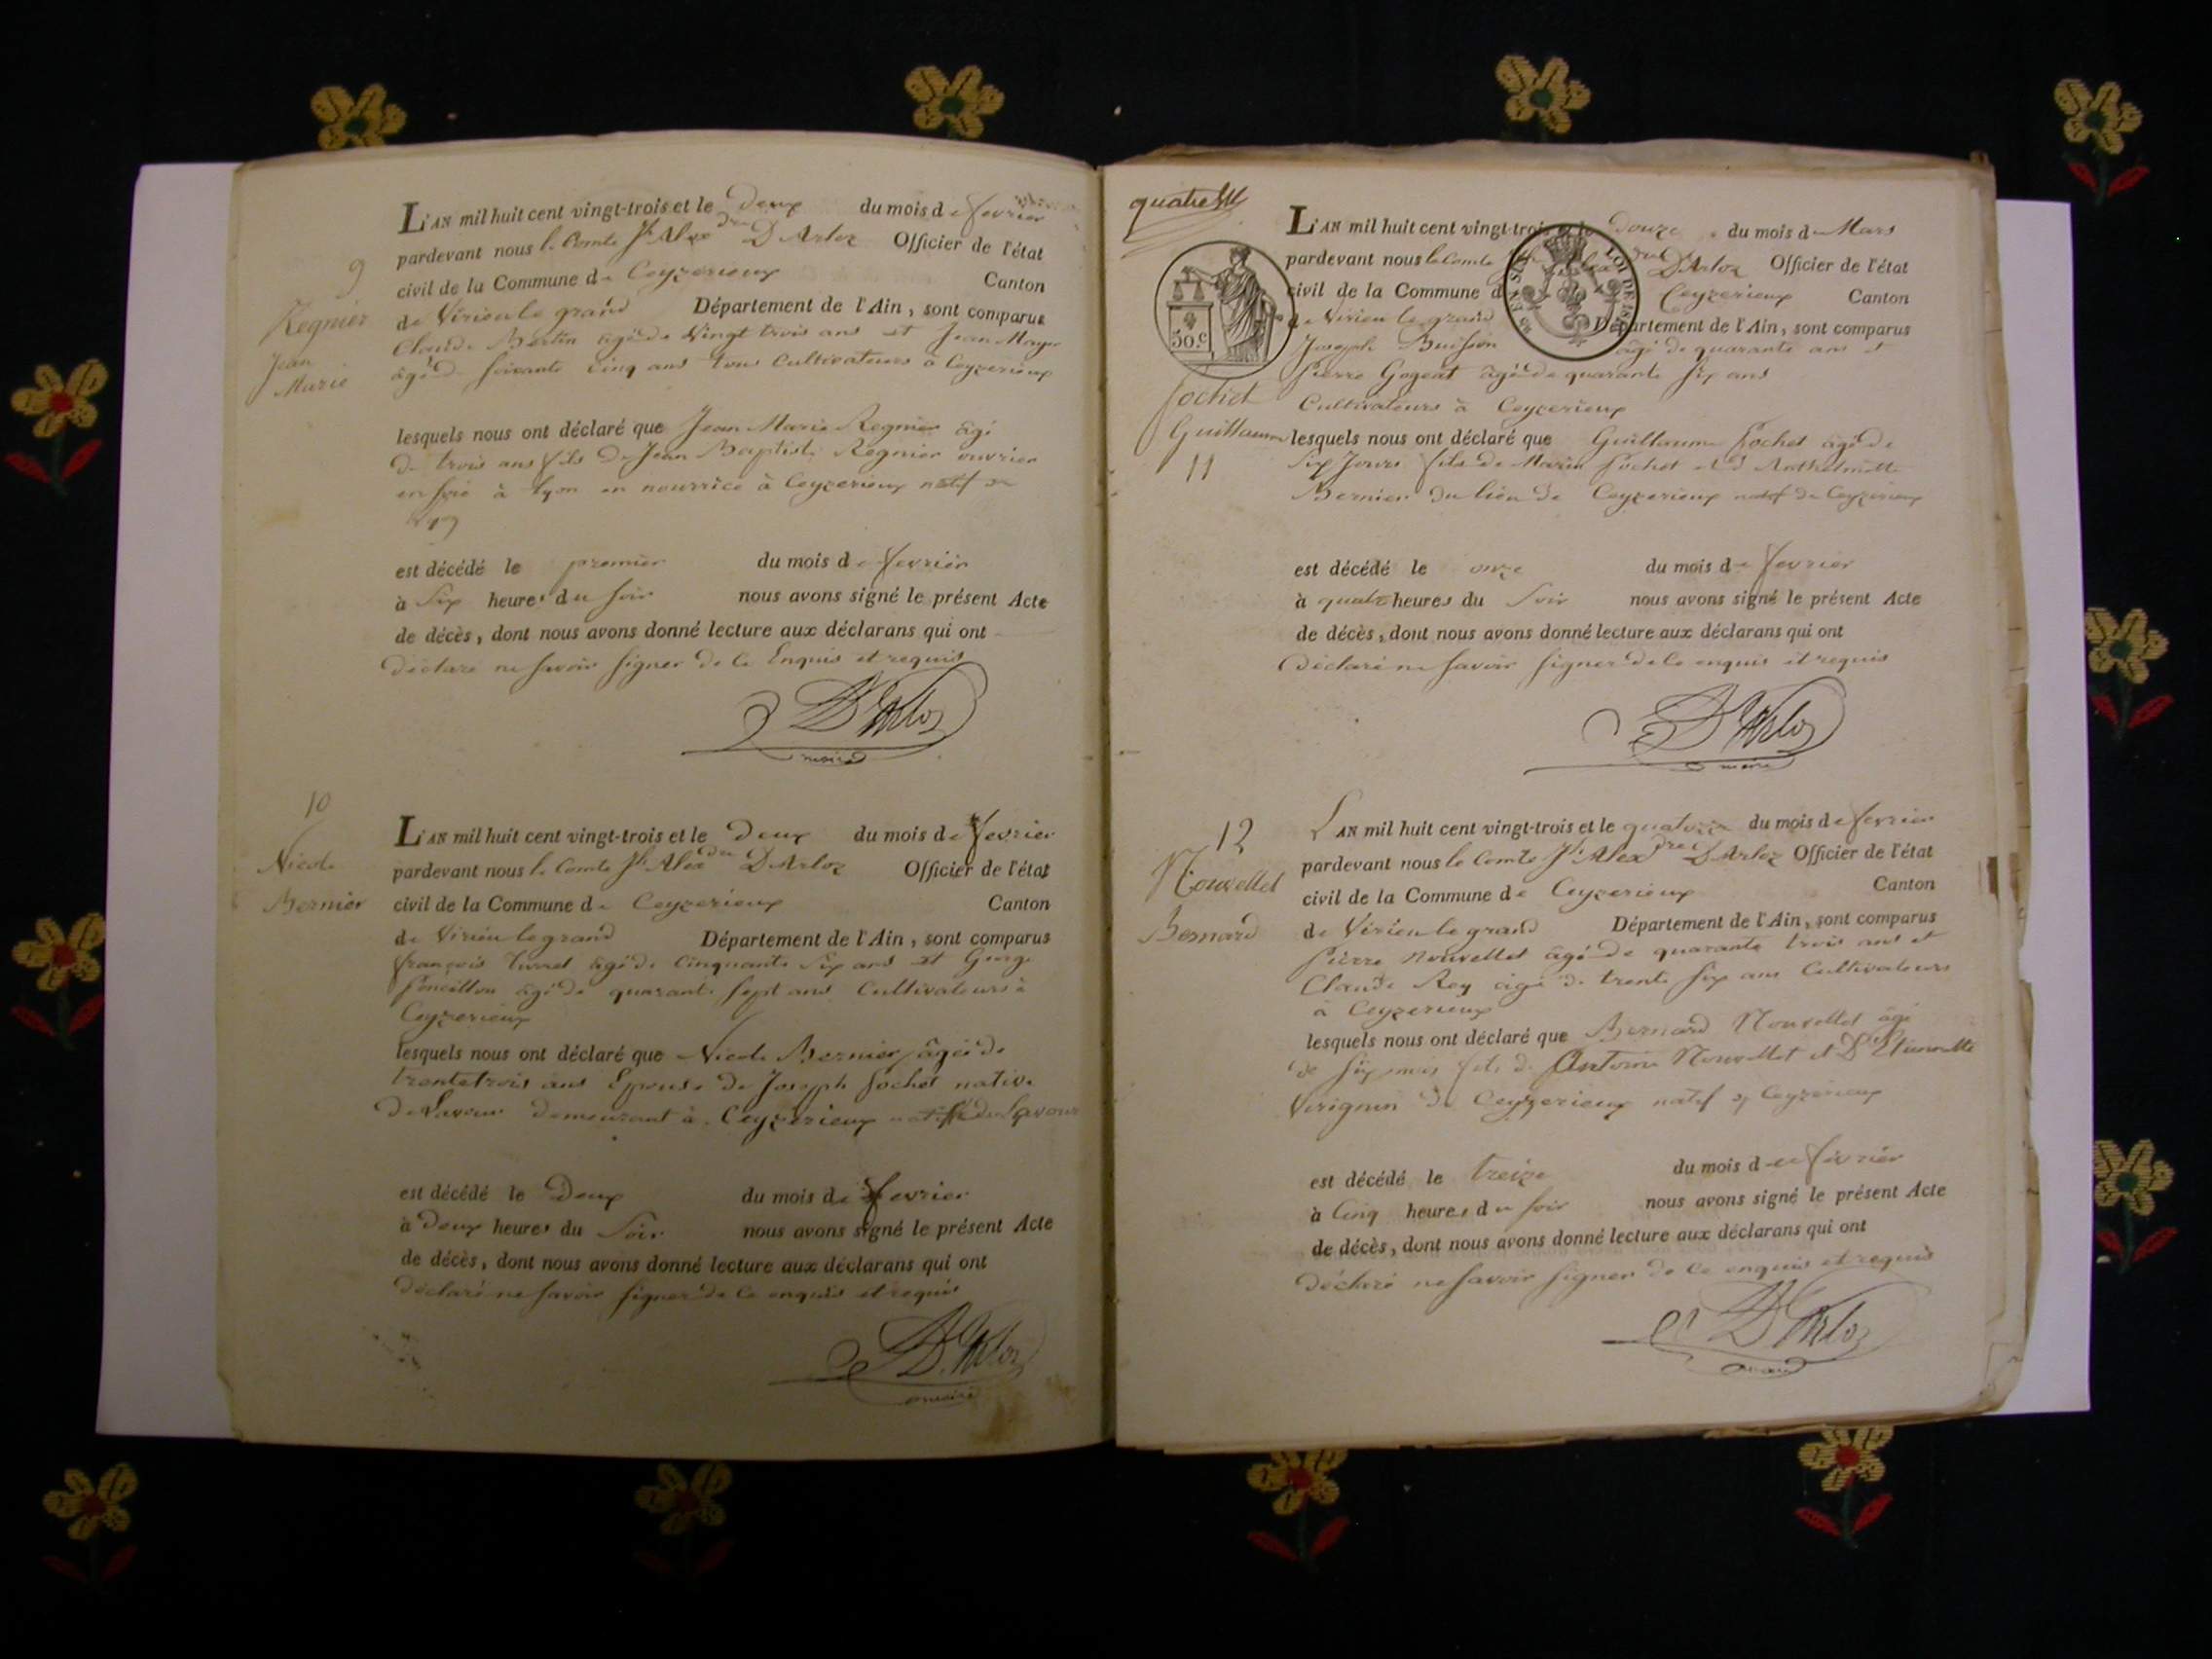 9
Regnier
Jean
Marie
L'AN mil huit cent vingt-trois et le Deux du mois de fevrier
pardevant nous le Comte Jh Alexdre D'Arloz Officier de l'état
civil de la Commune de Ceyzerieux Canton
de Virieu le grand Département de l'Ain, sont comparus
Claude Bertin âgé de Vingt trois ans et Jean
âgé de soixante Cinq ans tous Cultivateurs à Ceyzerieux
lesquels nous ont déclaré que Jean Marie Regnier âgé
de trois ans fils de Jean Baptiste Regnier ouvrier
en soie à Lyon en nourrice à Ceyzerieux natif de
est décédé le premier du mois de fevrier
à Six heures du soir nous avons signé le présent Acte
de décès, dont nous avons donné lecture aux déclarans qui ont
déclaré ne savoir signer de Ce Enquis et requis
D'Arloz
maire
10
Nicole
Bernier
L'AN mil huit cent vingt-trois et le Deux du mois de fevrier
pardevant nous le Comte Jh Alexdre D'Arloz Officier de l'état
civil de la Commune de Ceyzerieux Canton
de Virieu le grand Département de l'Ain, sont comparus
françois âgé de Cinquante Six ans et George
âgé de quarante sept ans Cultivateurs à
Ceyzerieux
lesquels nous ont déclaré que Nicole Bernier âgée de
trente trois ans Epouse de Joseph Fochet native
de Lavour demeurant à Ceyzerieux native de Lavour
est décédé le Deux du mois de fevrier
à deux heures du Soir nous avons signé le présent Acte
de décès, dont nous avons donné lecture aux déclarans qui ont
déclaré ne savoir signer de Ce enquis et requis
D'Arloz
maire
quatre
50.c
LOI DE
Fochet
Guillaume
11
L'AN mil huit cent vingt-trois et le Douze du mois de Mars
pardevant nous le Comte D'Arloz Officier de l'état
civil de la Commune de Ceyzerieux Canton
de Virieu le grand Département de l'Ain, sont comparus
Joseph Buisson âgé de quarante ans et
Pierre Gogeat âgé de quarante six ans
Cultivateurs à Ceyzerieux
lesquels nous ont déclaré que Guillaume Fochet âgé de
Six Jours fils de Marin Fochet et d'Anthelmette
Bernier du lieu de Ceyzerieux natif de Ceyzerieux
est décédé le onze du mois de fevrier
à quatre heures du Soir nous avons signé le présent Acte
de décès, dont nous avons donné lecture aux déclarans qui ont
déclaré ne savoir signer de Ce enquis et requis
D'Arloz
maire
12
Nouvellet
Bernard
L'AN mil huit cent vingt-trois et le quatorze du mois de fevrier
pardevant nous le Comte Jh Alexdre D'Arloz Officier de l'état
civil de la Commune de Ceyzerieux Canton
de Virieu le grand Département de l'Ain, sont comparus
Pierre Nouvellet âgé de quarante trois ans et
Claude Rey âgé de trente six ans Cultivateurs
à Ceyzerieux
lesquels nous ont déclaré que Bernard Nouvellet âgé
de six mois fils de Antoine Nouvellet et D'Etiennette
Verignon de Ceyzerieux natif de Ceyzerieux
est décédé le treize du mois de fevrier
à Cinq heures du soir nous avons signé le présent Acte
de décès, dont nous avons donné lecture aux déclarans qui ont
déclaré ne savoir signer de Ce enquis et requis
D'Arloz
maire